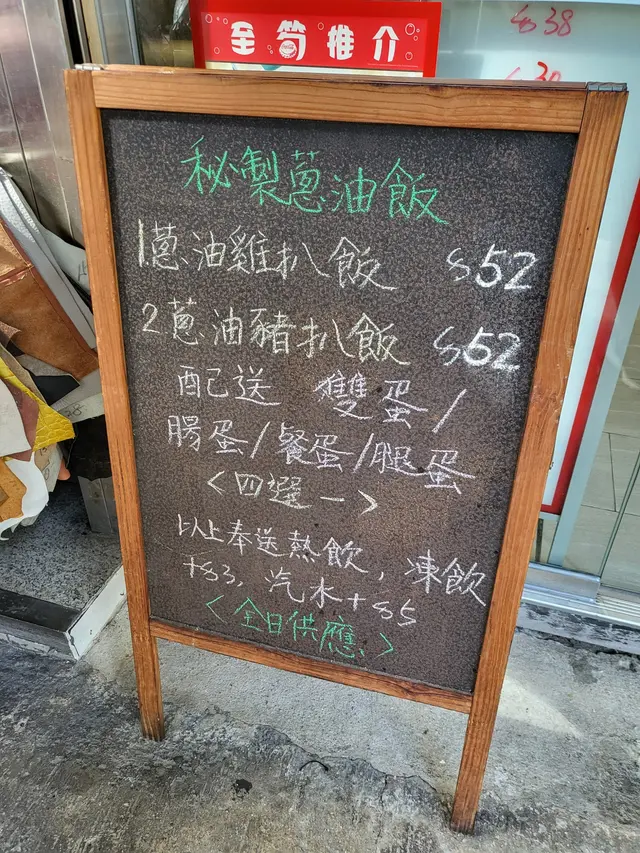 至筍推介
$38
秘製蔥油飯
1蔥油雞扒飯 $52
2蔥油豬扒飯 $52
配送 雙蛋/
腸蛋/餐蛋/腿蛋
<四選一>
以上奉送熱飲，凍飲
+$3，汽水+$5
<全日供應>